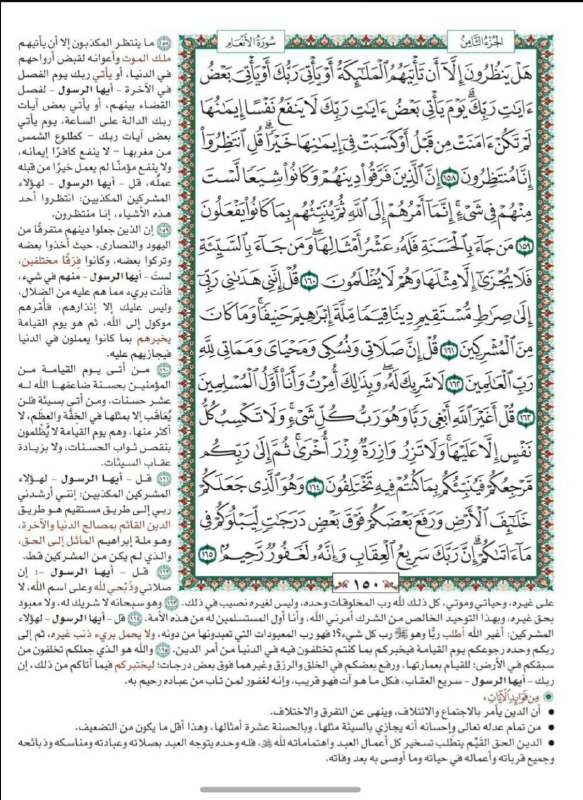 الجزء الثامن
سورة الأنعام
هَلْ يَنظُرُونَ إِلَّآ أَن تَأْتِيَهُمُ ٱلْمَلَـٰٓئِكَةُ أَوْ يَأْتِىَ رَبُّكَ أَوْ يَأْتِىَ بَعْضُ
ءَايَـٰتِ رَبِّكَ ۗ يَوْمَ يَأْتِى بَعْضُ ءَايَـٰتِ رَبِّكَ لَا يَنفَعُ نَفْسًا إِيمَـٰنُهَا
لَمْ تَكُنْ ءَامَنَتْ مِن قَبْلُ أَوْ كَسَبَتْ فِىٓ إِيمَـٰنِهَا خَيْرًا ۗ قُلِ ٱنتَظِرُوٓا۟
إِنَّا مُنتَظِرُونَ ١٥٨ إِنَّ ٱلَّذِينَ فَرَّقُوا۟ دِينَهُمْ وَكَانُوا۟ شِيَعًا لَّسْتَ
مِنْهُمْ فِى شَىْءٍ ۚ إِنَّمَآ أَمْرُهُمْ إِلَى ٱللَّهِ ثُمَّ يُنَبِّئُهُم بِمَا كَانُوا۟ يَفْعَلُونَ
١٥٩ مَن جَآءَ بِٱلْحَسَنَةِ فَلَهُۥ عَشْرُ أَمْثَالِهَا ۖ وَمَن جَآءَ بِٱلسَّيِّئَةِ
فَلَا يُجْزَىٰٓ إِلَّا مِثْلَهَا وَهُمْ لَا يُظْلَمُونَ ١٦٠ قُلْ إِنَّنِى هَدَىٰنِى رَبِّىٓ
إِلَىٰ صِرَٰطٍ مُّسْتَقِيمٍ دِينًا قِيَمًا مِّلَّةَ إِبْرَٰهِيمَ حَنِيفًا ۚ وَمَا كَانَ
مِنَ ٱلْمُشْرِكِينَ ١٦١ قُلْ إِنَّ صَلَاتِى وَنُسُكِى وَمَحْيَاىَ وَمَمَاتِى لِلَّهِ
رَبِّ ٱلْعَـٰلَمِينَ ١٦٢ لَا شَرِيكَ لَهُۥ ۖ وَبِذَٰلِكَ أُمِرْتُ وَأَنَا۠ أَوَّلُ ٱلْمُسْلِمِينَ
١٦٣ قُلْ أَغَيْرَ ٱللَّهِ أَبْغِى رَبًّا وَهُوَ رَبُّ كُلِّ شَىْءٍ ۚ وَلَا تَكْسِبُ كُلُّ
نَفْسٍ إِلَّا عَلَيْهَا ۚ وَلَا تَزِرُ وَازِرَةٌ وِزْرَ أُخْرَىٰ ۚ ثُمَّ إِلَىٰ رَبِّكُم
مَّرْجِعُكُمْ فَيُنَبِّئُكُم بِمَا كُنتُمْ فِيهِ تَخْتَلِفُونَ ١٦٤ وَهُوَ ٱلَّذِى جَعَلَكُمْ
خَلَـٰٓئِفَ ٱلْأَرْضِ وَرَفَعَ بَعْضَكُمْ فَوْقَ بَعْضٍ دَرَجَـٰتٍ لِّيَبْلُوَكُمْ فِى
مَآ ءَاتَىٰكُمْ ۗ إِنَّ رَبَّكَ سَرِيعُ ٱلْعِقَابِ وَإِنَّهُۥ لَغَفُورٌ رَّحِيمٌۢ ١٦٥
١٥٠
١٥٨ ما ينتظر المكذبون إلا أن يأتيهم
ملك الموت وأعوانه لقبض أرواحهم
في الدنيا، أو يأتي ربك يوم الفصل
في الآخرة - أيها الرسول - لفصل
القضاء بينهم، أو يأتي بعض آيات
ربك الدالة على الساعة، يوم يأتي
بعض آيات ربك - كطلوع الشمس
من مغربها - لا ينفع كافرًا إيمانه،
ولا ينفع مؤمنًا لم يعمل خيرًا من قبله
عمله، قل - أيها الرسول - لهؤلاء
المشركين المكذبين: انتظروا أحد
هذه الأشياء، إنا منتظرون.
١٥٩ إن الذين جعلوا دينهم متفرقًا من
اليهود والنصارى، حيث أخذوا بعضه
وتركوا بعضه، وكانوا فِرَقًا مختلفين،
لستَ - أيها الرسول - منهم في شيء،
فأنت بريء مما هم عليه من الضلال،
وليس عليك إلا إنذارهم، فأمرهم
موكول إلى الله، ثم هو يوم القيامة
يخبرهم بما كانوا يعملون في الدنيا
فيجازيهم عليه.
١٦٠ من أتى يوم القيامة من
المؤمنين بحسنة ضاعفها الله له
عشر حسنات، ومن أتى بسيئة فلن
يُعَاقب إلا بمثلها في الخفَّة والعظَم، لا
أكثر منها، وهم يوم القيامة لا يُظْلمون
بنقصِ ثواب الحسنات، ولا بزيادة
عقاب السيئات.
١٦١ قل - أيها الرسول - لهؤلاء
المشركين المكذبين: إنني أرشدني
ربي إلى طريق مستقيم هو طريق
الدين القائم بمصالح الدنيا والآخرة،
وهو ملة إبراهيم المائل إلى الحق،
والذي لم يكن من المشركين قط.
١٦٢ قل - أيها الرسول -: إن
صلاتي وذَبْحي لله وعلى اسم الله، لا
على غيره، وحياتي وموتي، كل ذلك لله رب المخلوقات وحده، وليس لغيره نصيب في ذلك. ١٦٣ وهو سبحانه لا شريك له، ولا معبود
بحق غيره، وبهذا التوحيد الخالص من الشرك أمرني الله، وأنا أول المستسلمين له من هذه الأمة. ١٦٤ قل - أيها الرسول - لهؤلاء
المشركين: أغير الله أطلب ربًّا وهو ﷻ رب كل شيء؟! فهو رب المعبودات التي تعبدونها من دونه، ولا يحمل بريء ذنب غيره، ثم إلى
ربكم وحده رجوعكم يوم القيامة فيخبركم بما كنتم تختلفون فيه في الدنيا من أمر الدين. ١٦٥ والله هو الذي جعلكم تخلفون من
سبقكم في الأرض؛ للقيام بعمارتها، ورفع بعضكم في الخلق والرزق وغيرهما فوق بعض درجات؛ ليختبركم فيما آتاكم من ذلك، إن
ربك - أيها الرسول - سريع العقاب، فكل ما هو آت فهو قريب، وإنه لغفور لمن تاب من عباده رحيم به.
من فوائد الآيات:
• أن الدين يأمر بالاجتماع والائتلاف، وينهى عن التفرق والاختلاف.
• من تمام عدله تعالى وإحسانه أنه يجازي بالسيئة مثلها، وبالحسنة عشرة أمثالها، وهذا أقل ما يكون من التضعيف.
• الدين الحق القَيِّم يتطلب تسخير كل أعمال العبد واهتماماته لله ﷻ، فله وحده يتوجه العبد بصلاته وعبادته ومناسكه وذبائحه
وجميع قرباته وأعماله في حياته وما أوصى به بعد وفاته.